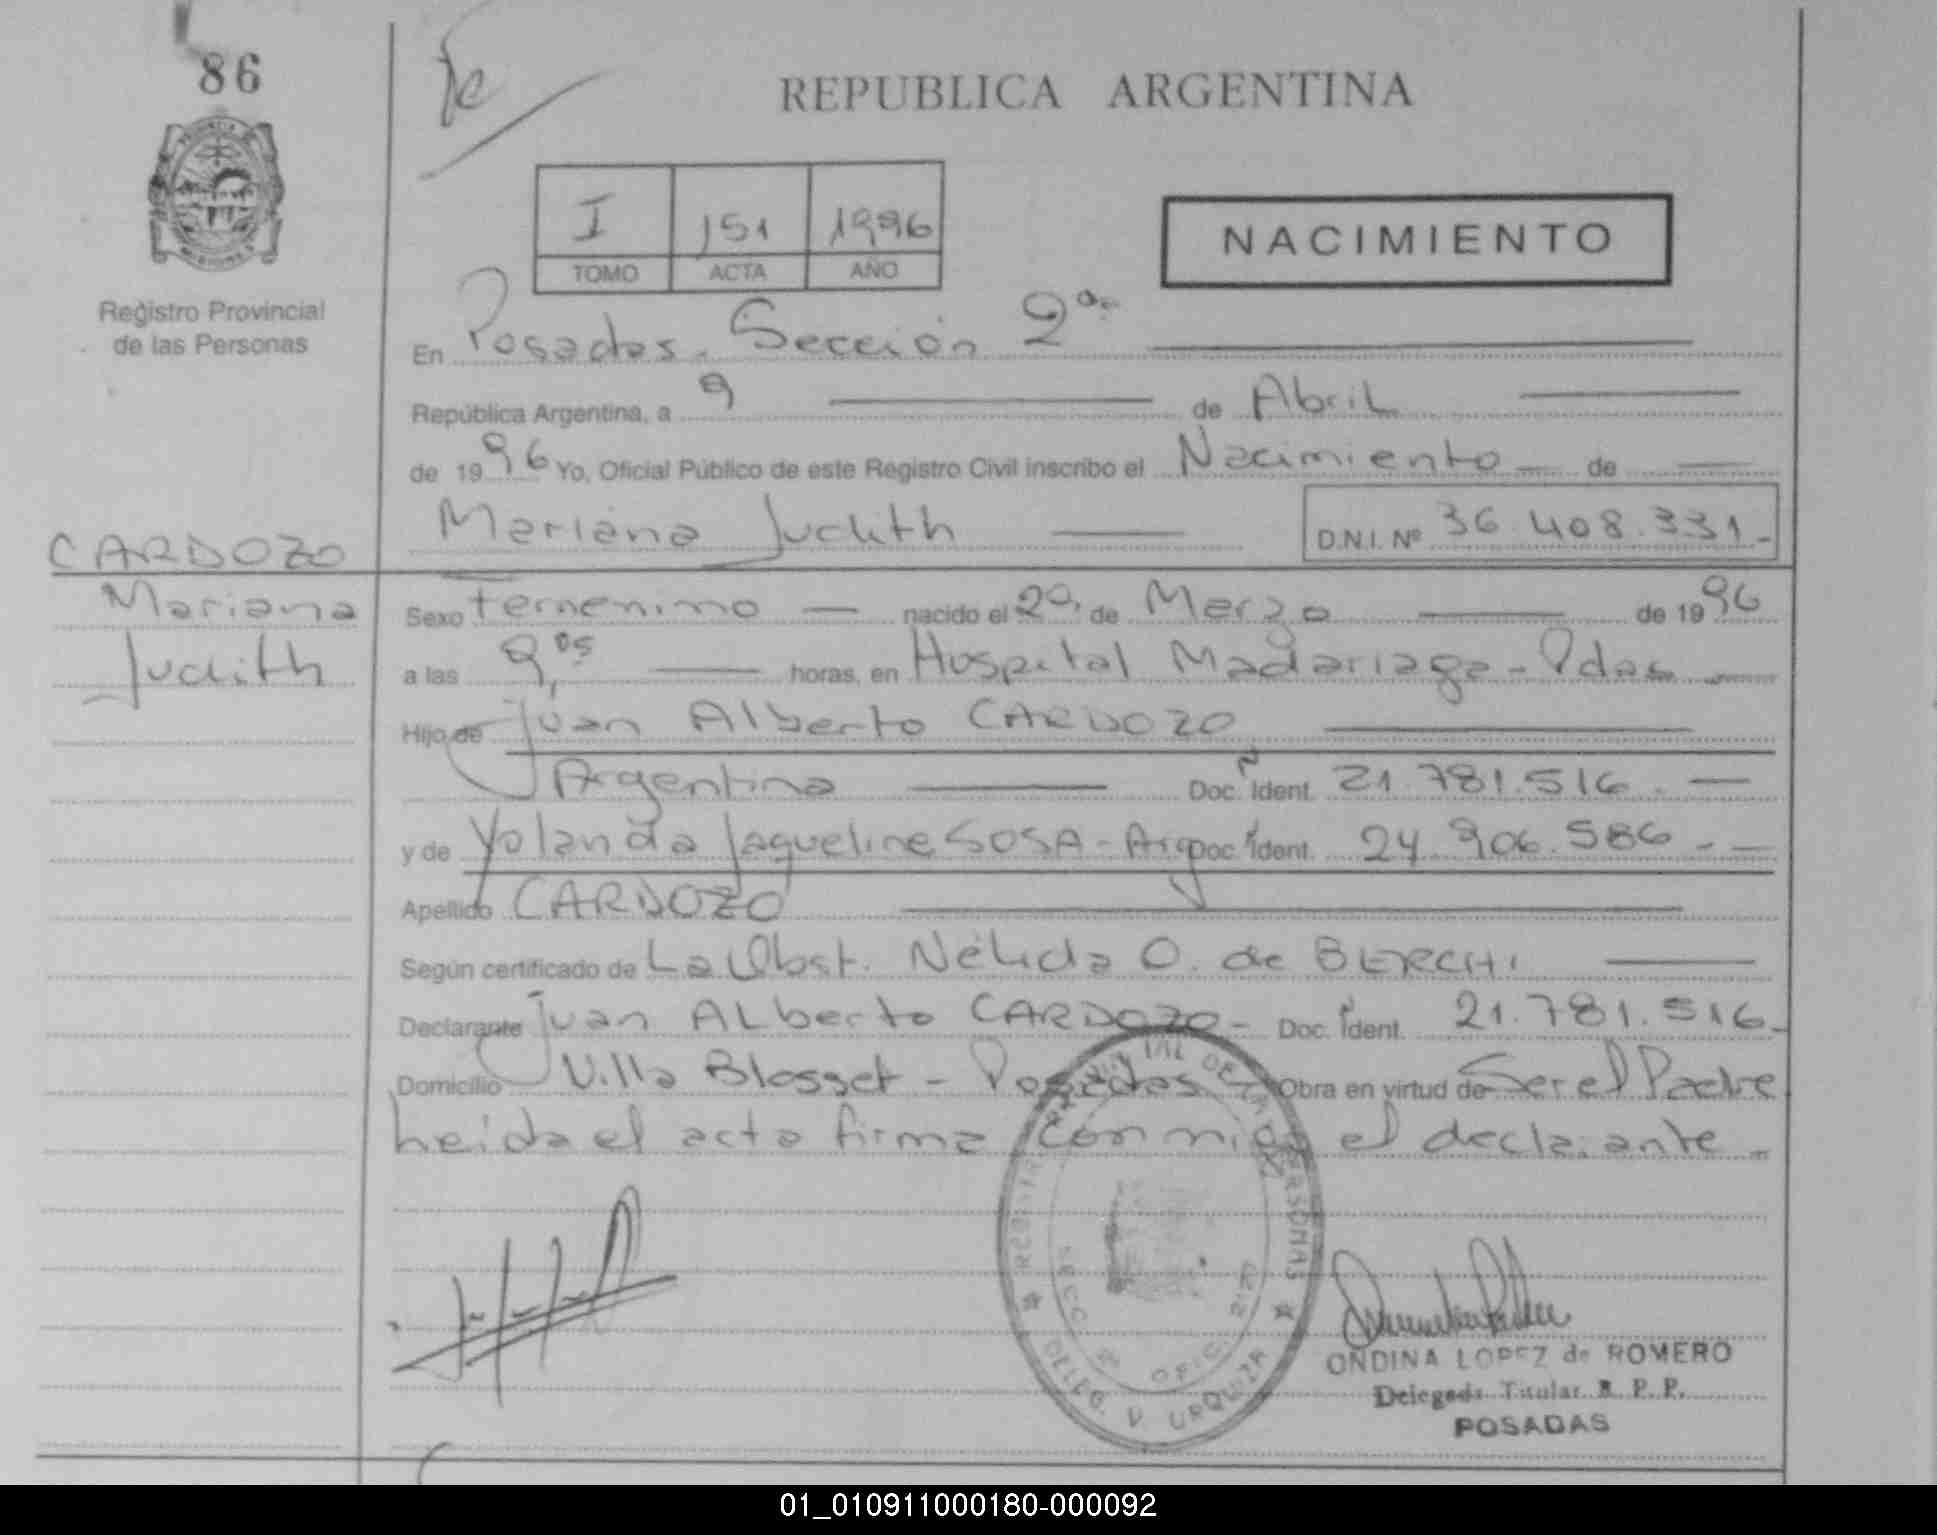 86
REPUBLICA ARGENTINA
I 151 1996
TOMO ACTA AÑO
NACIMIENTO
Registro Provincial
de las Personas
En Posadas. Sección 2a
República Argentina, a 9 de Abril
de 1996 Yo, Oficial Público de este Registro Civil inscribo el Nacimiento de
Mariana Judith D.N.I. Nº 36.408.331
CARDOZO
Mariana
Judith
Sexo femenino nacido el de Marzo de 1996
a las 9,05 horas, en Hospital Madariaga - Pdas
Hijo de Juan Alberto CARDOZO
Argentina Doc. Ident. 21.781.516
y de Yolanda Jaqueline SOSA - Arg Doc. Ident. 24.906.586
Apellido CARDOZO
Según certificado de La Obst. Nélida O. de BERCHI
Declarante Juan ALberto CARDOZO - Doc. Ident. 21.781.516
Domicilio Villa Blosset - Posadas Obra en virtud de Ser el Padre
heida el acta firma conmigo el declarante
REGISTRO PROVINCIAL DE LAS PERSONAS
SECC OFIC.
DELEG. V URQUIZA
ONDINA LOPEZ de ROMERO
Delegada Titular R. P. P.
POSADAS
01_010911000180-000092